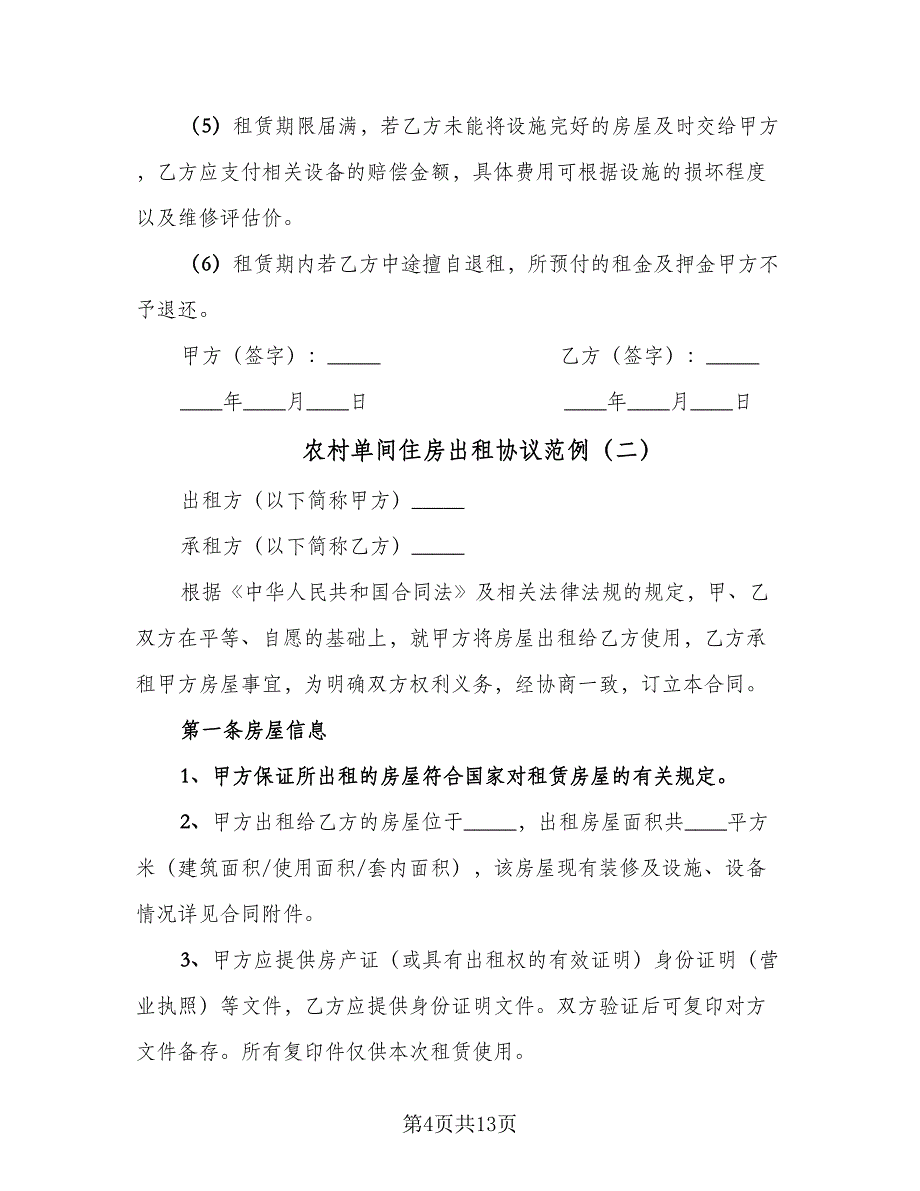 （5）租赁期限届满，若乙方未能将设施完好的房屋及时交给甲方
，乙方应支付相关设备的赔偿金额，具体费用可根据设施的损坏程度
以及维修评估价。
（6）租赁期内若乙方中途擅自退租，所预付的租金及押金甲方不
予退还。
甲方（签字）：_____ 乙方（签字）：_____
____年____月____日 ____年____月____日
农村单间住房出租协议范例（二）
出租方（以下简称甲方）_____
承租方（以下简称乙方）_____
根据《中华人民共和国合同法》及相关法律法规的规定，甲、乙
双方在平等、自愿的基础上，就甲方将房屋出租给乙方使用，乙方承
租甲方房屋事宜，为明确双方权利义务，经协商一致，订立本合同。
第一条房屋信息
1、甲方保证所出租的房屋符合国家对租赁房屋的有关规定。
2、甲方出租给乙方的房屋位于_____，出租房屋面积共____平方
米（建筑面积/使用面积/套内面积），该房屋现有装修及设施、设备
情况详见合同附件。
3、甲方应提供房产证（或具有出租权的有效证明）身份证明（营
业执照）等文件，乙方应提供身份证明文件。双方验证后可复印对方
文件备存。所有复印件仅供本次租赁使用。
第4页共13页